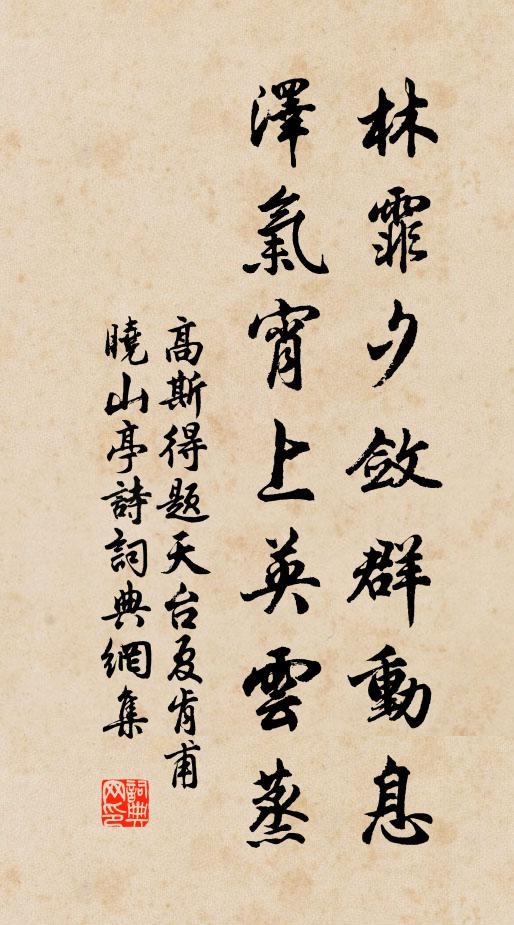 林霏夕斂群動息
澤氣宵上英雲蒸
高斯得題天台夏肯甫
曉山亭詩詞典網集
詞典
网印